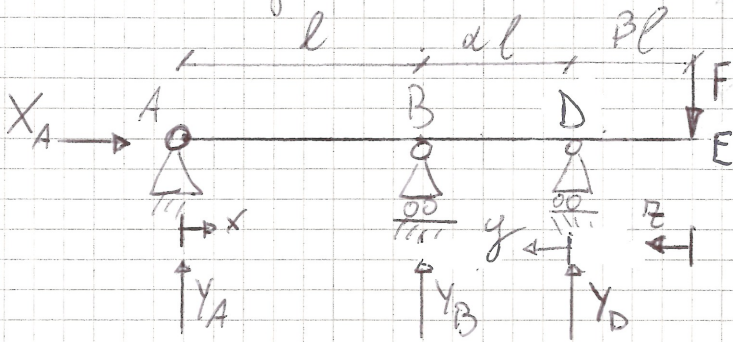 l αl βl
F
X_A A B D E
x y z
Y_A Y_B Y_D